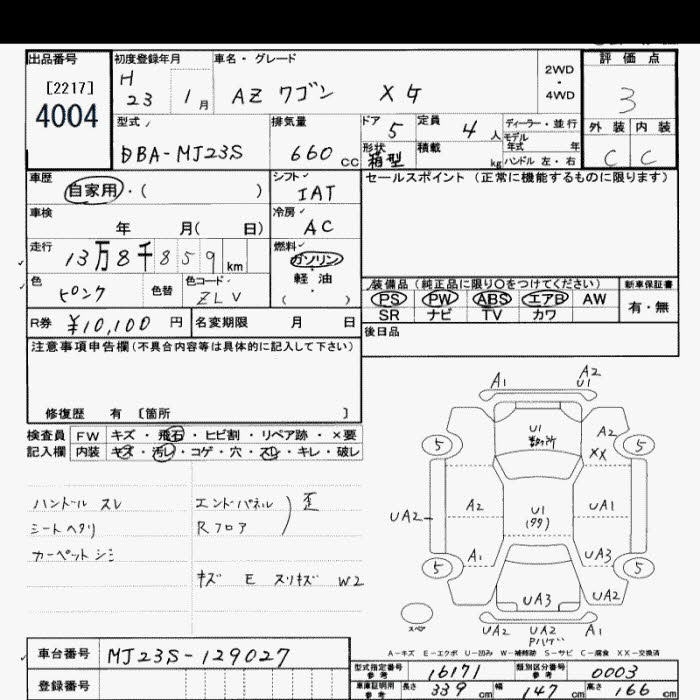 出品番号
[2217]
4004
初度登録年月
H
23 1月
車名・グレード
AZ ワゴン XG
2WD
・
4WD
評価点
3
外装 内装
C C
型式
DBA-MJ23S
排気量
660 cc
ドア 5
定員 4人
形状 箱型
積載 kg
ディーラー・並行
モデル
年式 年
ハンドル 左・右
車歴
自家用・( )
シフト
IAT
セールスポイント (正常に機能するものに限ります)
車検
年 月( 日)
冷房
AC
走行
13万8千859 km
燃料
ガソリン
・
軽油
( )
色
ピンク
色替
色コード
ZLV
装備品(純正品に限り○をつけてください)
PS PW ABS エアB AW
SR ナビ TV カワ
新車保証書
有・無
R券 ¥10,100 円
名変期限 月 日
後日品
注意事項申告欄(不具合内容等は具体的に記入して下さい)
修復歴 有 [箇所 ]
検査員
記入欄
FW キズ・飛石・ヒビ割・リペア跡・×要
内装 キズ・汚レ・コゲ・穴・スレ・キレ・破レ
ハンドル スレ
シートヘタリ
カーペットシミ
エンドパネル
Rフロア
歪
キズ E スリキズ W2
A1
A2
U1
U1
A2
XX
5 5
A2
U1
UA1
UA2
A1
UA3
5 5
UA3
UA2
スペア
UA2 UA2 A1
A-キズ E-エクボ U-凹み W-補修跡 S-サビ C-腐食 XX-交換済
車台番号 MJ23S-129027
登録番号
型式指定番号
参考
16171
類別区分番号
参考
0003
車庫証明用
参考
長さ 339 cm 幅 147 cm 高さ 166 cm